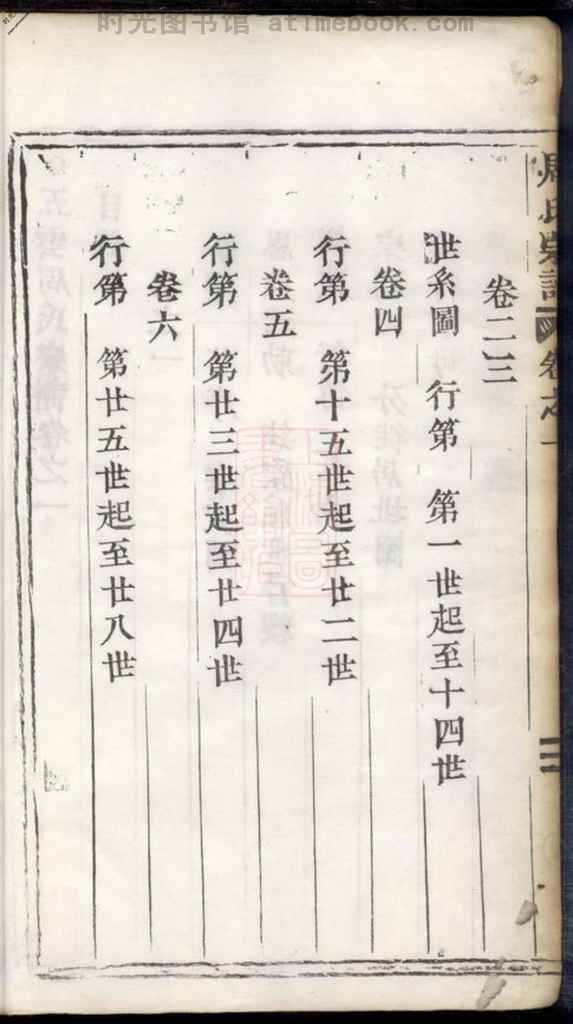 时光图书馆 atimebook.com
周氏宗譜 卷之一 二
卷二三
世系圖 行第 第一世起至十四世
卷四
行第 第十五世起至廿二世
卷五
行第 第廿三世起至廿四世
卷六
行第 第廿五世起至廿八世